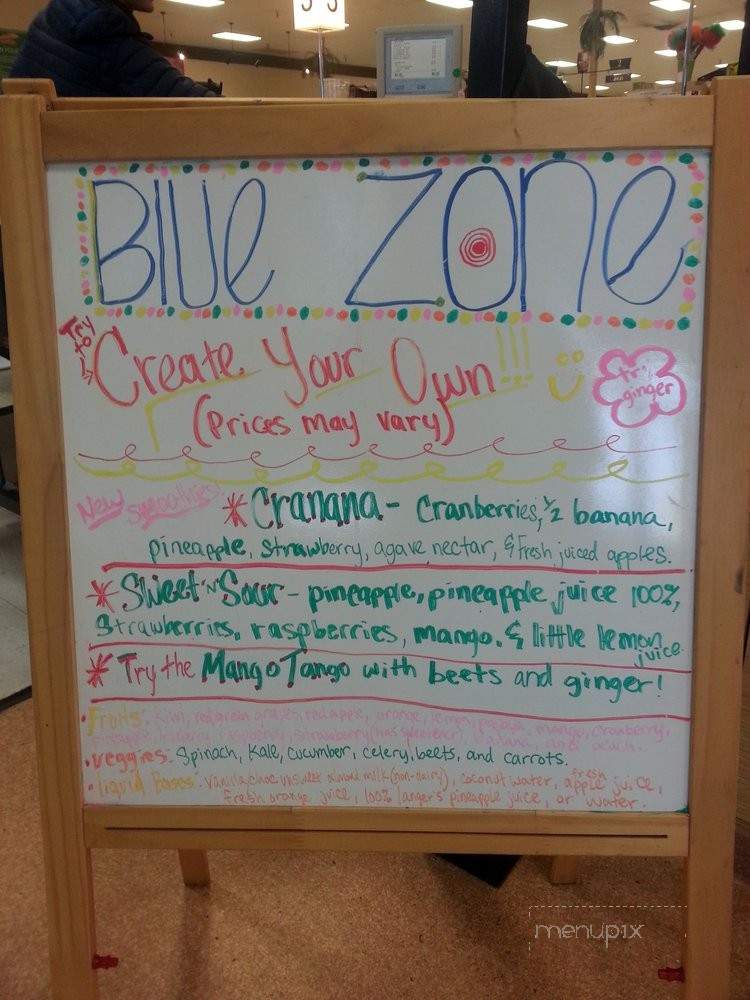 Blue Zone
Try to
Create Your Own!!!
(Prices may vary)
try ginger
New Smoothies!
*Cranana - Cranberries, 1/2 banana,
pineapple, strawberry, agave nectar, & fresh juiced apples.
*Sweet 'N' Sour - pineapple, pineapple juice 100%,
strawberries, raspberries, mango, & little lemon juice.
*Try the Mango Tango with beets and ginger!
• Fruits: kiwi, red/green grapes, red apple, orange, lemon, papaya, mango, cranberry,
pineapple, blueberry, raspberry, strawberry banana, and peach.
• veggies: Spinach, Kale, cucumber, celery, beets, and carrots.
• liquid bases: vanilla, choc almond milk (non-dairy), coconut water, fresh apple juice,
Fresh orange juice, 100% langers pineapple juice, or water.
menupix